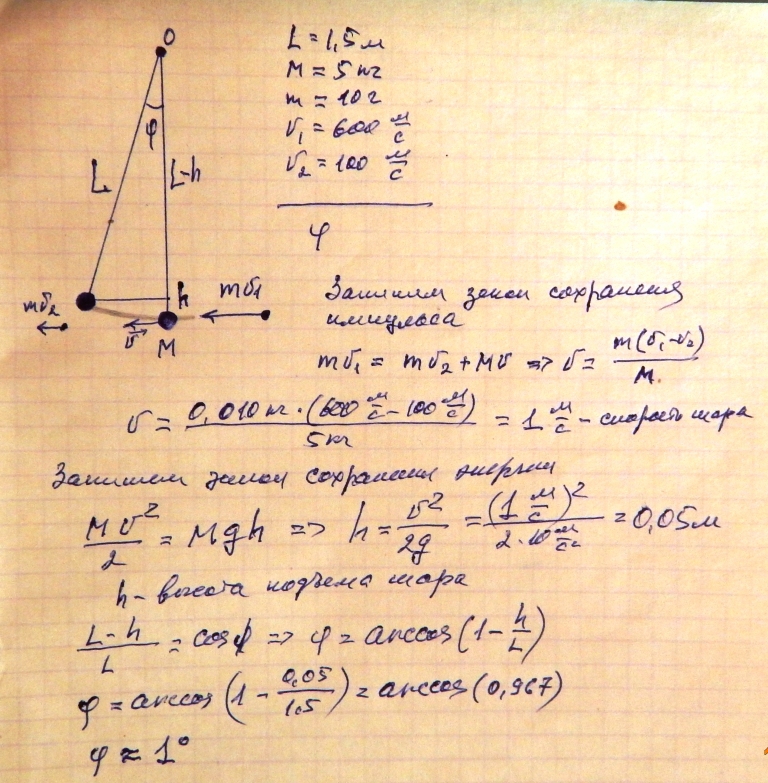 O
φ
L
L-h
h
mv₂
v
M
mv₁
L = 1,5 м
M = 5 кг
m = 10 г
v₁ = 600 м/с
v₂ = 100 м/с
φ
Запишем закон сохранения
импульса
mv₁ = mv₂ + Mv => v = m(v₁-v₂)/M
v = 0,010 кг·(600 м/с - 100 м/с)/5 кг = 1 м/с - скорость шара
Запишем закон сохранения энергии
Mv²/2 = Mgh => h = v²/2g = (1 м/с)²/2·10 м/с² = 0,05 м
h - высота подъема шара
L-h/L = cosφ => φ = arccos(1 - h/L)
φ = arccos(1 - 0,05/1.5) = arccos(0,967)
φ ≈ 1°